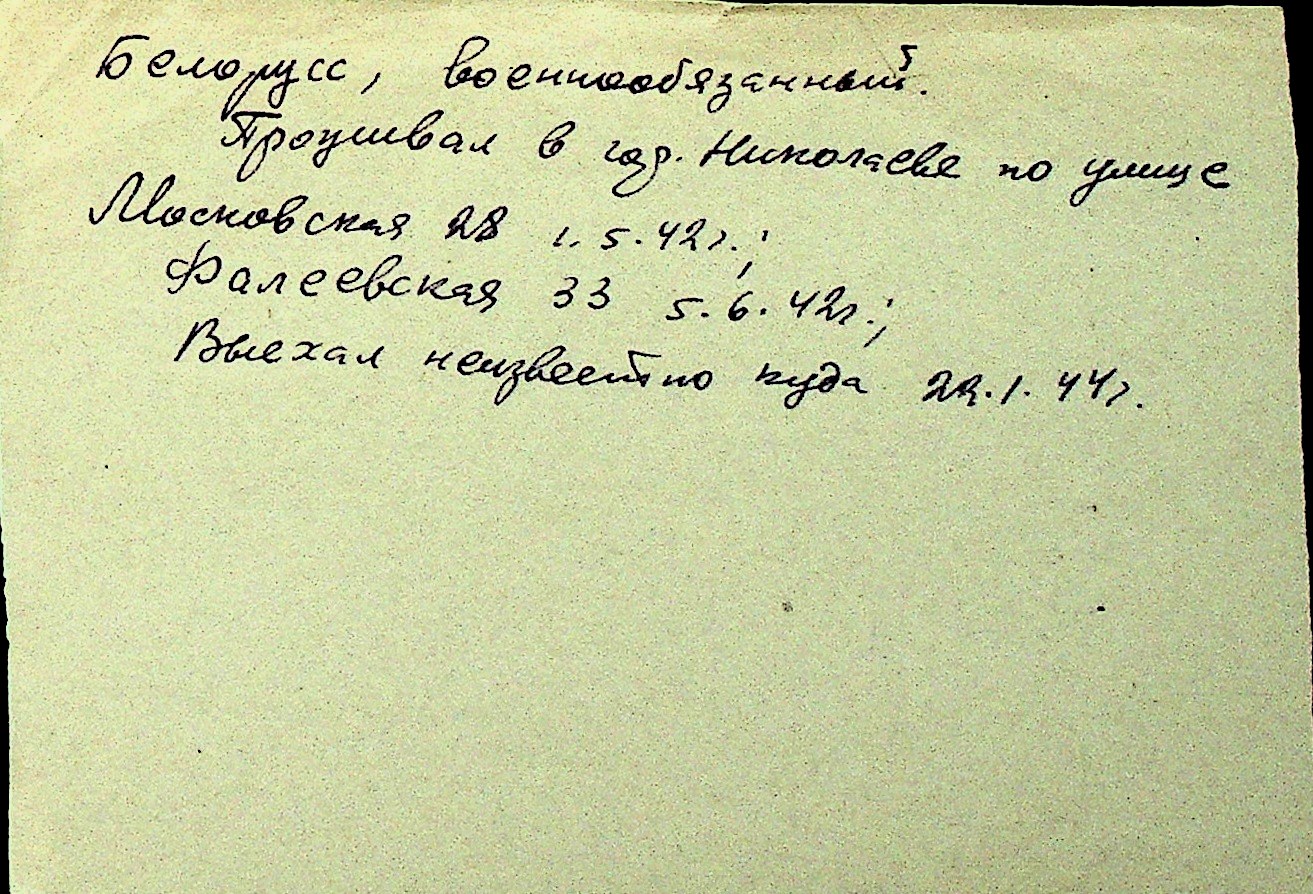 Белорусс, военнообязанный.
Проживал в гор. Николаеве по улице
Московская 28 1.5.42г.;
Фалеевская 33 5.6.42г.;
Выехал неизвестно куда